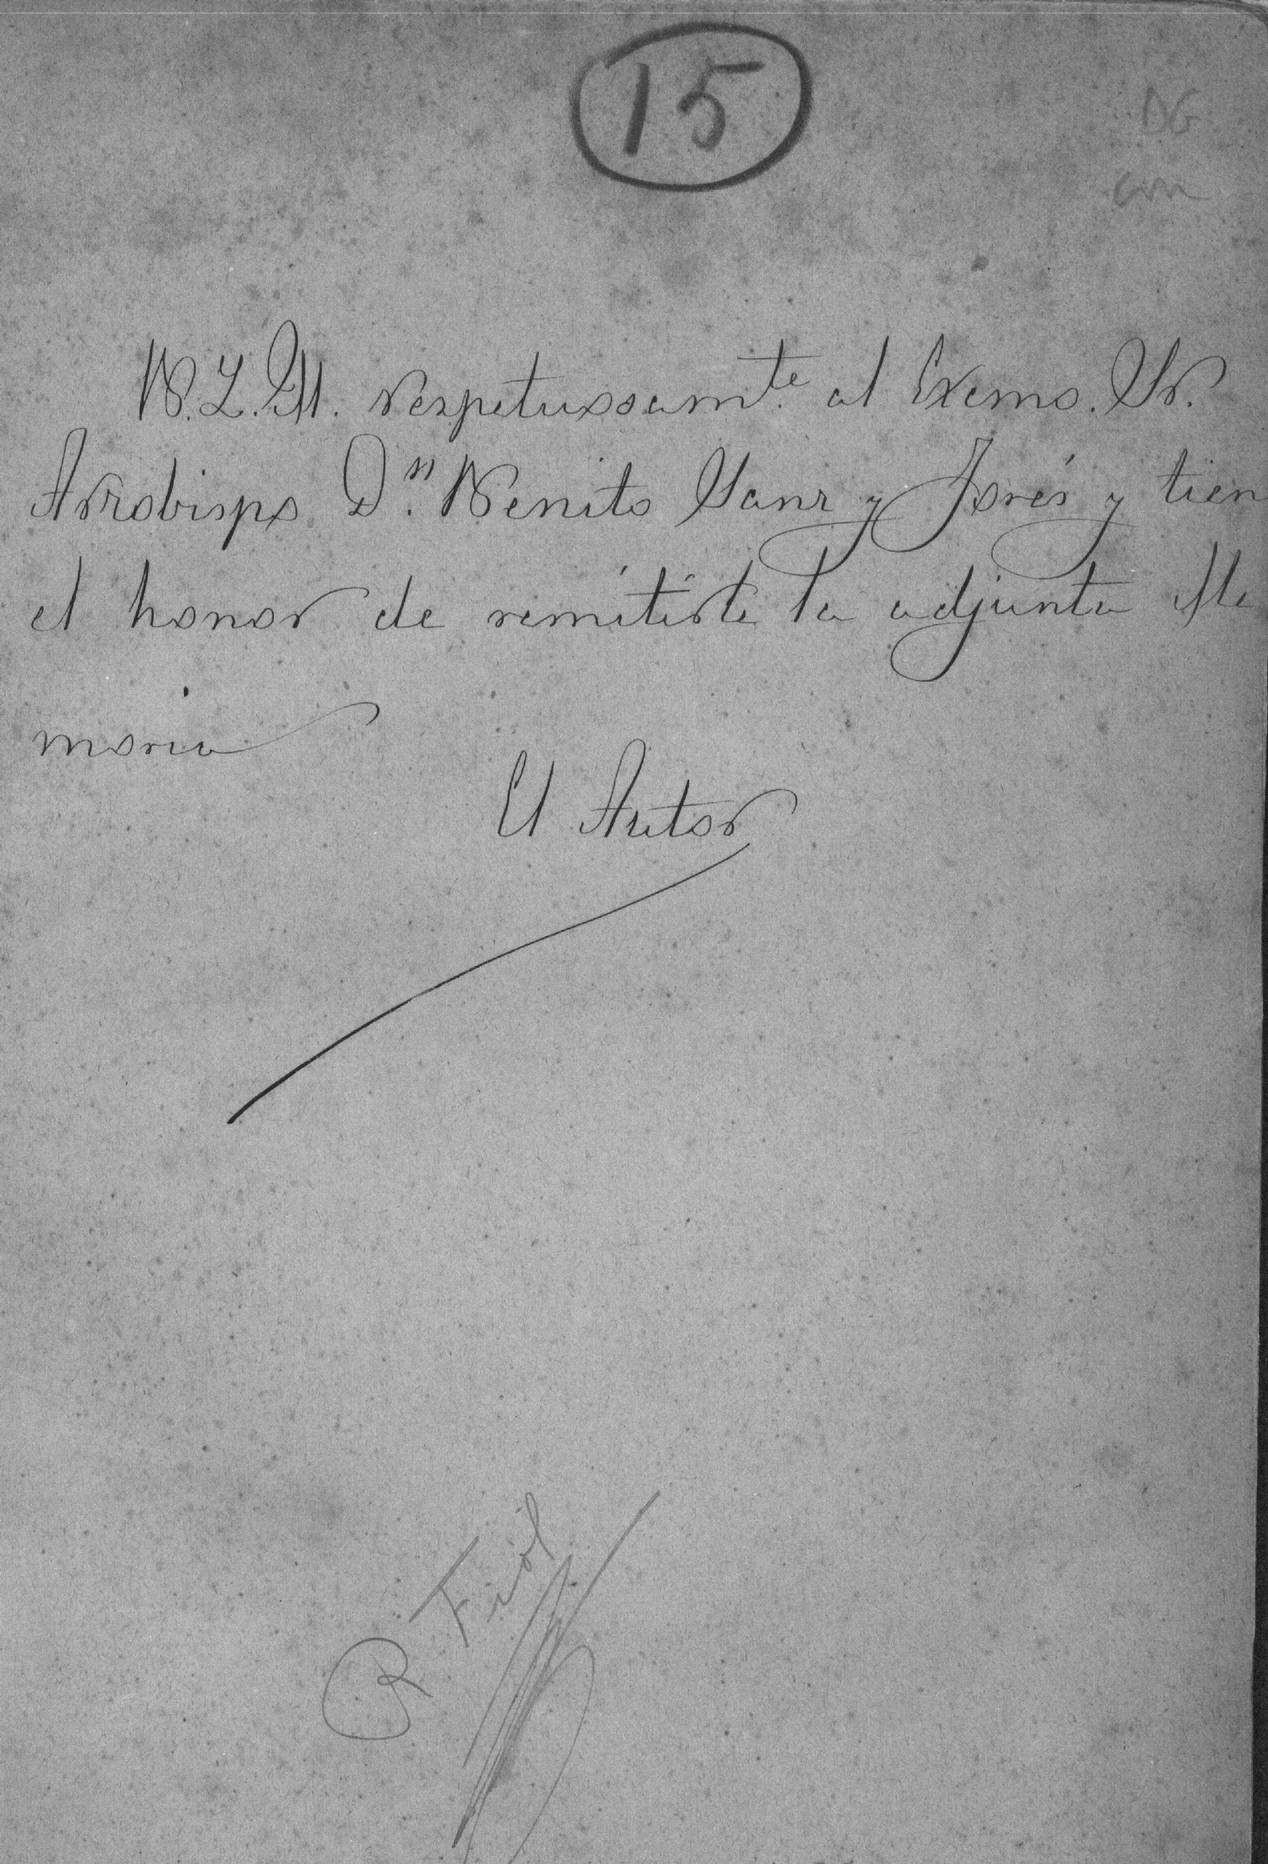 15
DG
B.L.M. respetuosam.te al Excmo. Sr.
Arzobispo D.n Benito Sanz y Forés y tien
el honor de remitirle la adjunta Me
moria
El Autor
R. Fiol